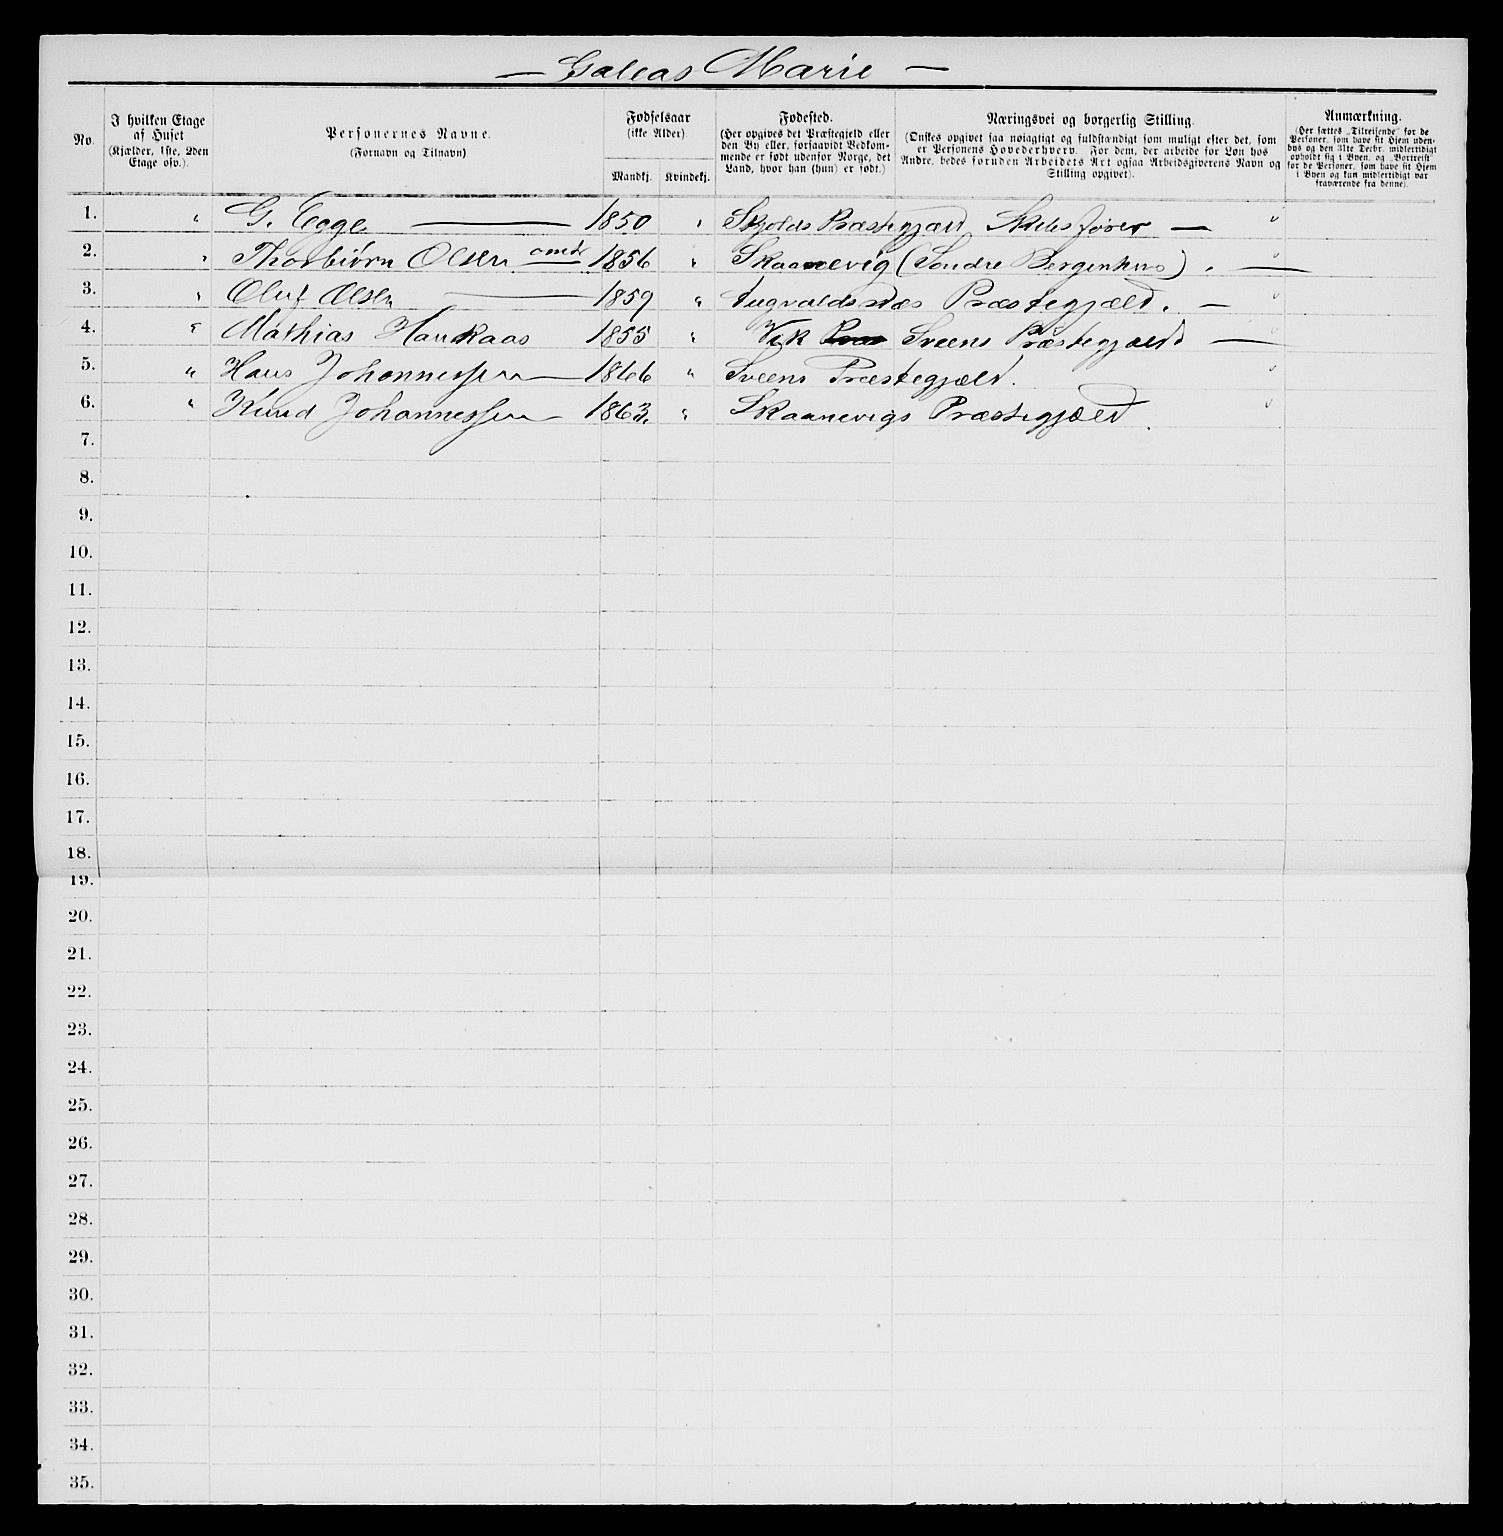 — Galeas Marie —
No.
I hvilken Etage
af Huset
(Kjælder, 1ste, 2den
Etage osv.).
Personernes Navne.
(Fornavn og Tilnavn)
Fødselsaar
(ikke Alder).
Mandkj.
Kvindekj.
Fødested.
(Her opgives det Præstegjeld eller
den By eller, forsaavidt Vedkom-
mende er født udenfor Norge, det
Land, hvor han (hun) er født.)
Næringsvei og borgerlig Stilling.
(Ønskes opgivet saa nøiagtigt og fuldstændigt som muligt efter det, som
er Personens Hovederhverv. For dem, der arbeide for Løn hos
Andre, bedes foruden Arbeidets Art ogsaa Arbeidsgiverens Navn og
Stilling opgivet).
Anmærkning.
(Her sættes „Tilreisende” for de
Personer, som have sit Hjem uden-
bys og den 31te Decbr. midlertidigt
opholdt sig i Byen, og „Bortreist”
for de Personer, som have sit Hjem
i Byen og kun midlertidigt var
fraværende fra denne).
1. " G. Egge — 1850 " Skjolds Præstegjæld Skibsfører — "
2. " Thorbiørn Olsen 1856 " Skaanevig (Søndre Bergenhus). — "
3. " Oluf Olsen — 1859 " Augvaldsnæs Præstegjæld. — "
4. " Mathias Haukaas 1855 " Vik Sveens Præstegjæld — "
5. " Hans Johannessen — 1866 " Sveens Præstegjæld. "
6. " Knud Johannessen — 1863. " Skaanevigs Præstegjæld. "
7.
8.
9.
10.
11.
12.
13.
14.
15.
16.
17.
18.
19.
20.
21.
22.
23.
24.
25.
26.
27.
28.
29.
30.
31.
32.
33.
34.
35.